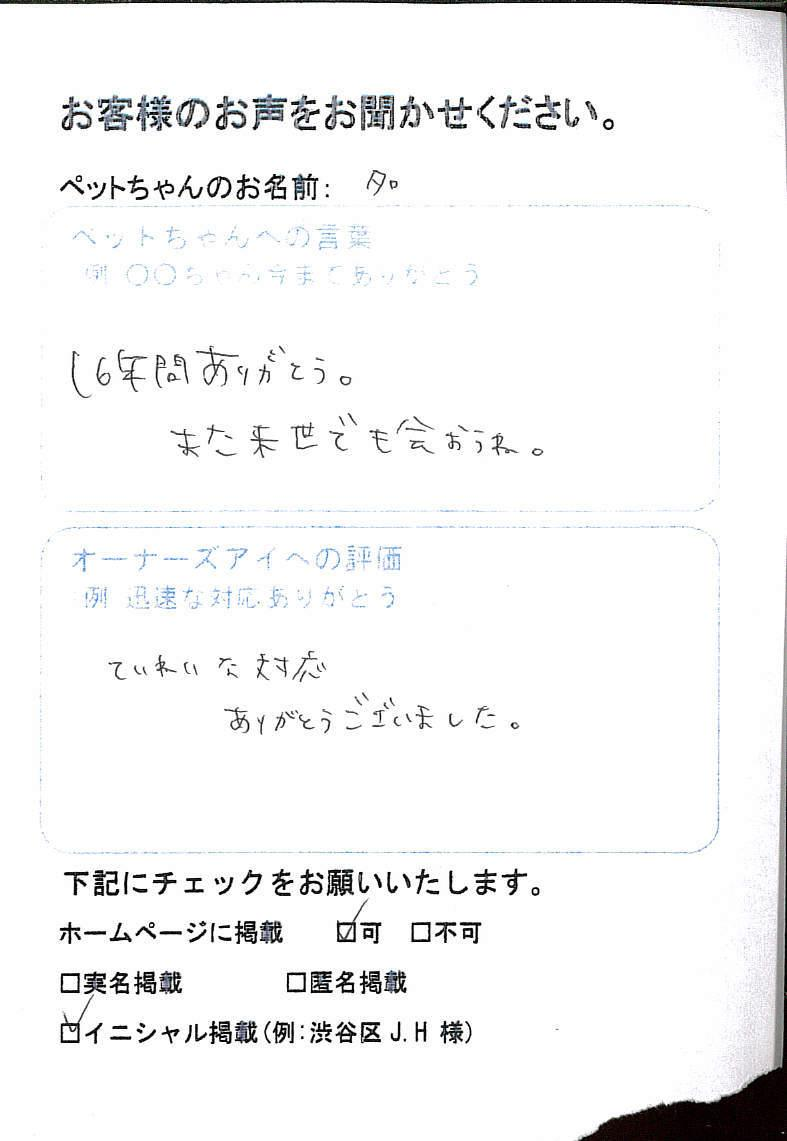 お客様のお声をお聞かせください。
ペットちゃんのお名前: タロ
ペットちゃんへの言葉
例 〇〇ちゃん今までありがとう
16年間ありがとう。
また来世でも会おうね。
オーナーズアイへの評価
例 迅速な対応ありがとう
ていねいな対応
ありがとうございました。
下記にチェックをお願いいたします。
ホームページに掲載 ☑可 □不可
□実名掲載 □匿名掲載
☑イニシャル掲載(例:渋谷区 J.H 様)